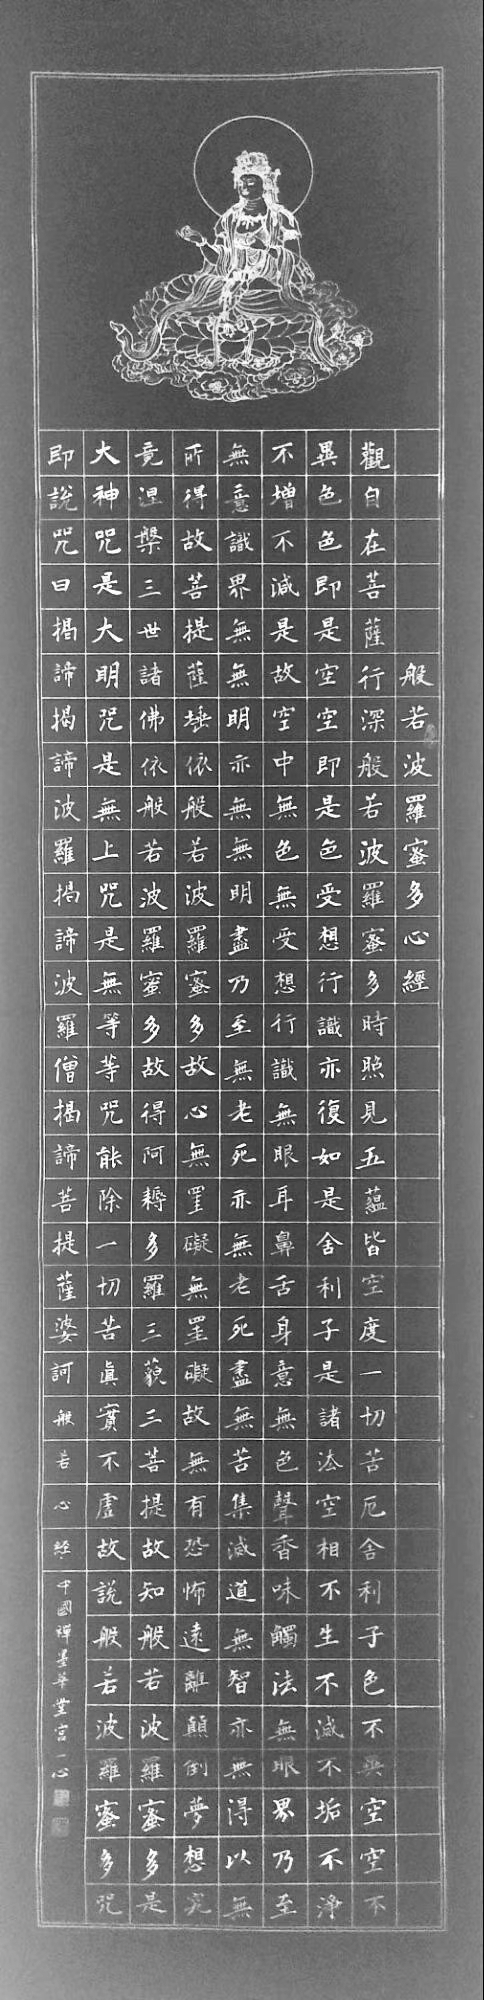 般若波羅蜜多心經
觀自在菩薩行深般若波羅蜜多時照見五蘊皆空度一切苦厄舍利子色不異空空不
異色色即是空空即是色受想行識亦復如是舍利子是諸法空相不生不滅不垢不淨
不增不減是故空中無色無受想行識無眼耳鼻舌身意無色聲香味觸法無眼界乃至
無意識界無無明亦無無明盡乃至無老死亦無老死盡無苦集滅道無智亦無得以無
所得故菩提薩埵依般若波羅蜜多故心無罣礙無罣礙故無有恐怖遠離顛倒夢想究
竟涅槃三世諸佛依般若波羅蜜多故得阿耨多羅三藐三菩提故知般若波羅蜜多是
大神咒是大明咒是無上咒是無等等咒能除一切苦眞實不虛故說般若波羅蜜多咒
即說咒曰揭諦揭諦波羅揭諦波羅僧揭諦菩提薩婆訶般若心經
中國禪墨華堂宮一心